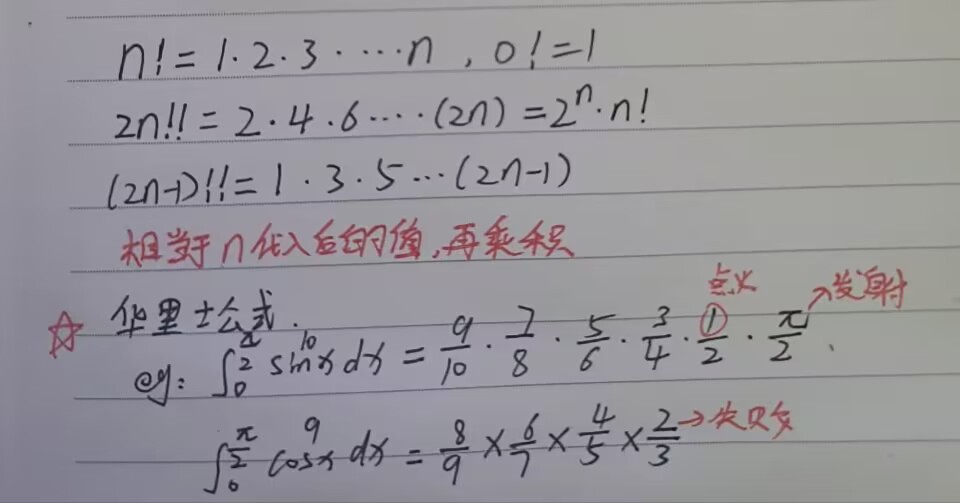 n! = 1·2·3·…·n , 0! = 1
2n!! = 2·4·6····(2n) = 2ⁿ·n!
(2n-1)!! = 1·3·5···(2n-1)
相当于n代入后的值,再乘积
点火 →发射
☆ 华里士公式.
eg: ∫₀^(π/2) sin¹⁰x dx = 9/10 · 7/8 · 5/6 · 3/4 · ①/2 · π/2 .
∫₀^(π/2) cos⁹x dx = 8/9 × 6/7 × 4/5 × 2/3 →失败